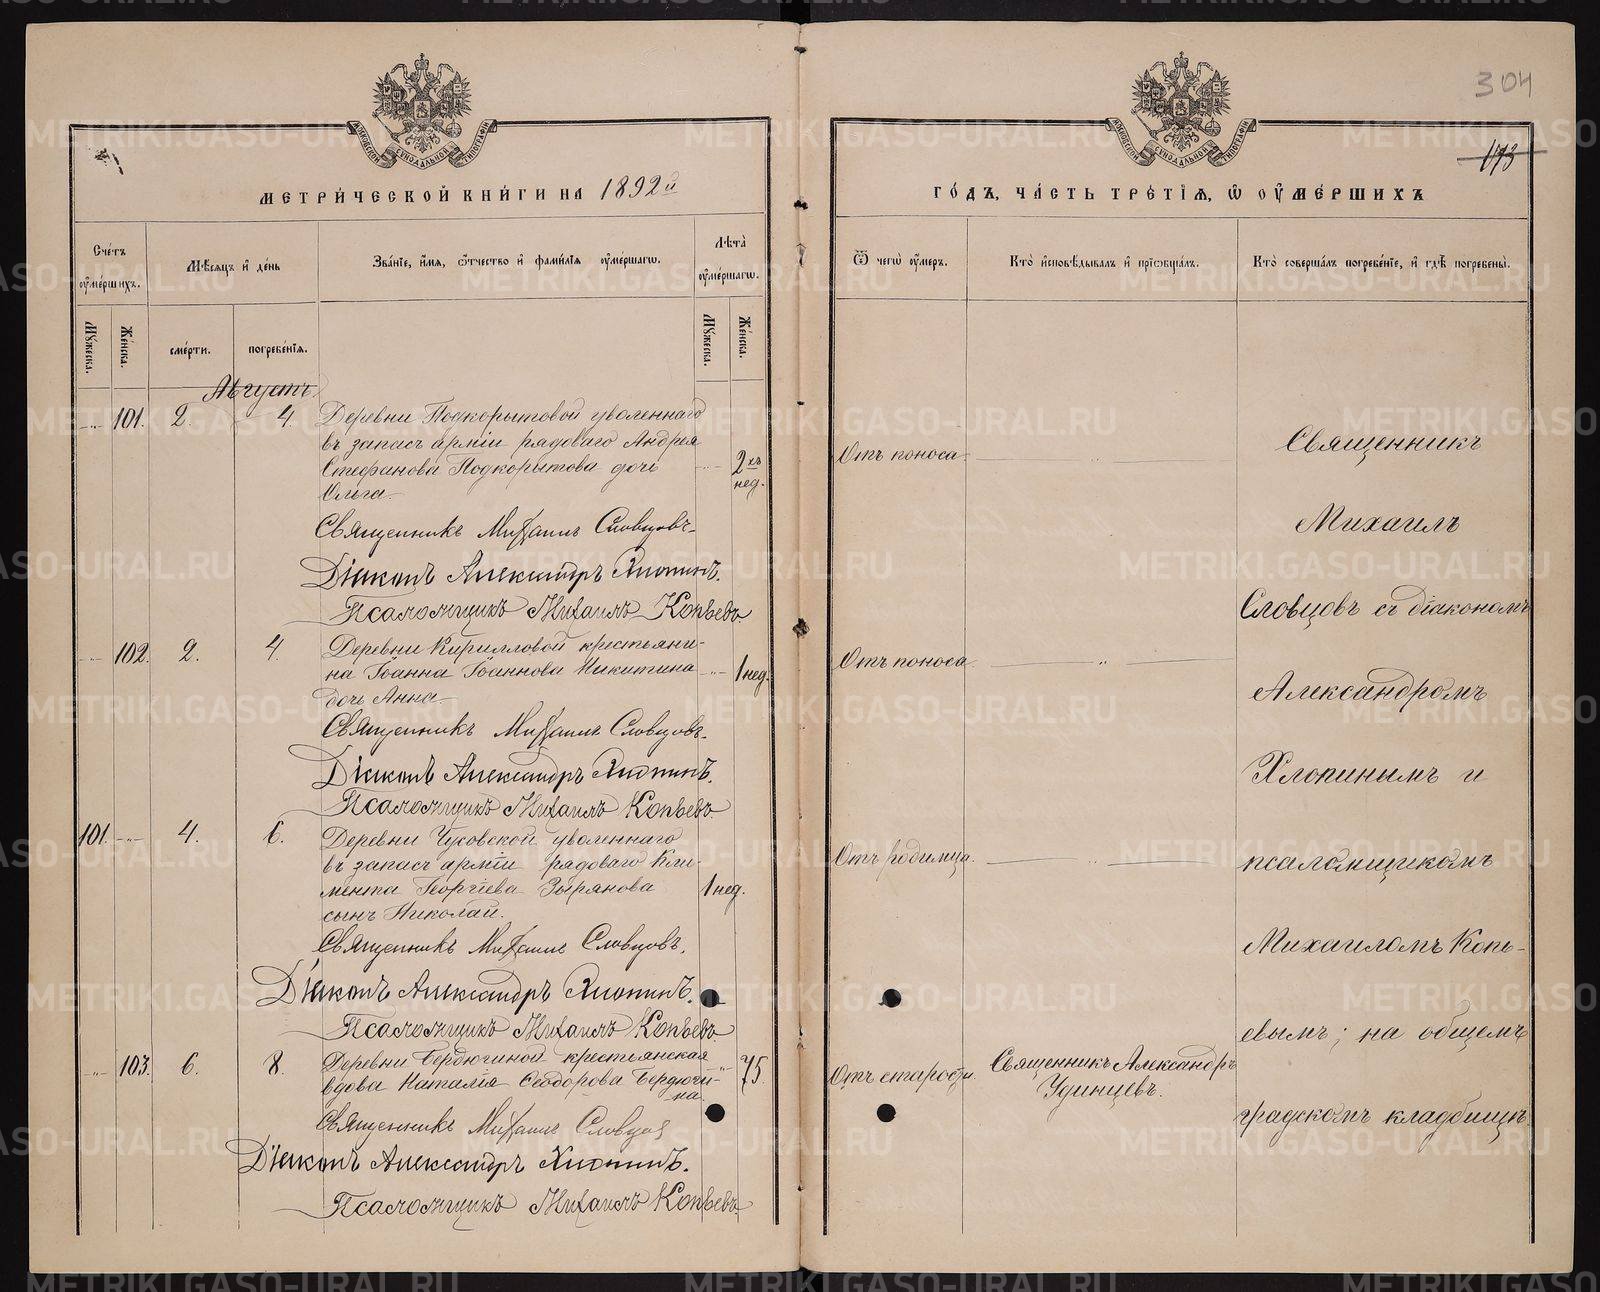 304
173
МЕТРИЧЕСКОЙ КНИГИ НА 1892й
ГОДЪ, ЧАСТЬ ТРЕТІЯ, Ѡ ОУМЕРШИХЪ
Счетъ оумершихъ.
Мѣсяцъ и день
Званіе, имя, отчество и фамилія оумершагѡ.
Лѣта оумершагѡ.
Ѿ чегѡ оумеръ.
Кто исповѣдывалъ и пріѡбщалъ.
Кто совершалъ погребеніе, и гдѣ погребены.
Мужеска.
Женска.
смерти.
погребенія.
Мужеска.
Женска.
Августъ.
101. 2. 4. Деревни Подкорытовой уволеннаго
въ запасъ арміи рядоваго Андрея
Стефанова Подкорытова дочь
Ольга
2хъ нед.
Отъ поноса
Священникъ Михаилъ Словцовъ
Діаконъ Александръ Хлопинъ.
Псаломщикъ Михаилъ Копьевъ
102. 2. 4. Деревни Кирилловой крестьяни-
на Іоанна Іоаннова Никитина
дочь Анна
1 нед.
Отъ поноса
Священникъ Михаилъ Словцовъ.
Діаконъ Александръ Хлопинъ.
Псаломщикъ Михаилъ Копьевъ
101. 4. 6. Деревни Чусовской уволеннаго
въ запасъ арміи рядоваго Кли-
мента Георгіева Зырянова
сынъ Николай.
1 нед.
Отъ родимца.
Священникъ Михаилъ Словцовъ.
Діаконъ Александръ Хлопинъ.
Псаломщикъ Михаилъ Копьевъ
103. 6. 8. Деревни Бердюгиной крестьянская
вдова Наталія Ѳеодорова Бердюги-
на.
75.
Отъ старости.
Священникъ Александръ
Удинцевъ.
Священникъ Михаилъ Словцов
Діаконъ Александръ Хлопинъ.
Псаломщикъ Михаилъ Копьевъ
Священникъ
Михаилъ
Словцовъ съ діакономъ
Александромъ
Хлопинымъ и
псаломщикомъ
Михаиломъ Копь-
евымъ; на общемъ
градскомъ кладбищѣ.
METRIKI.GASO-URAL.RU